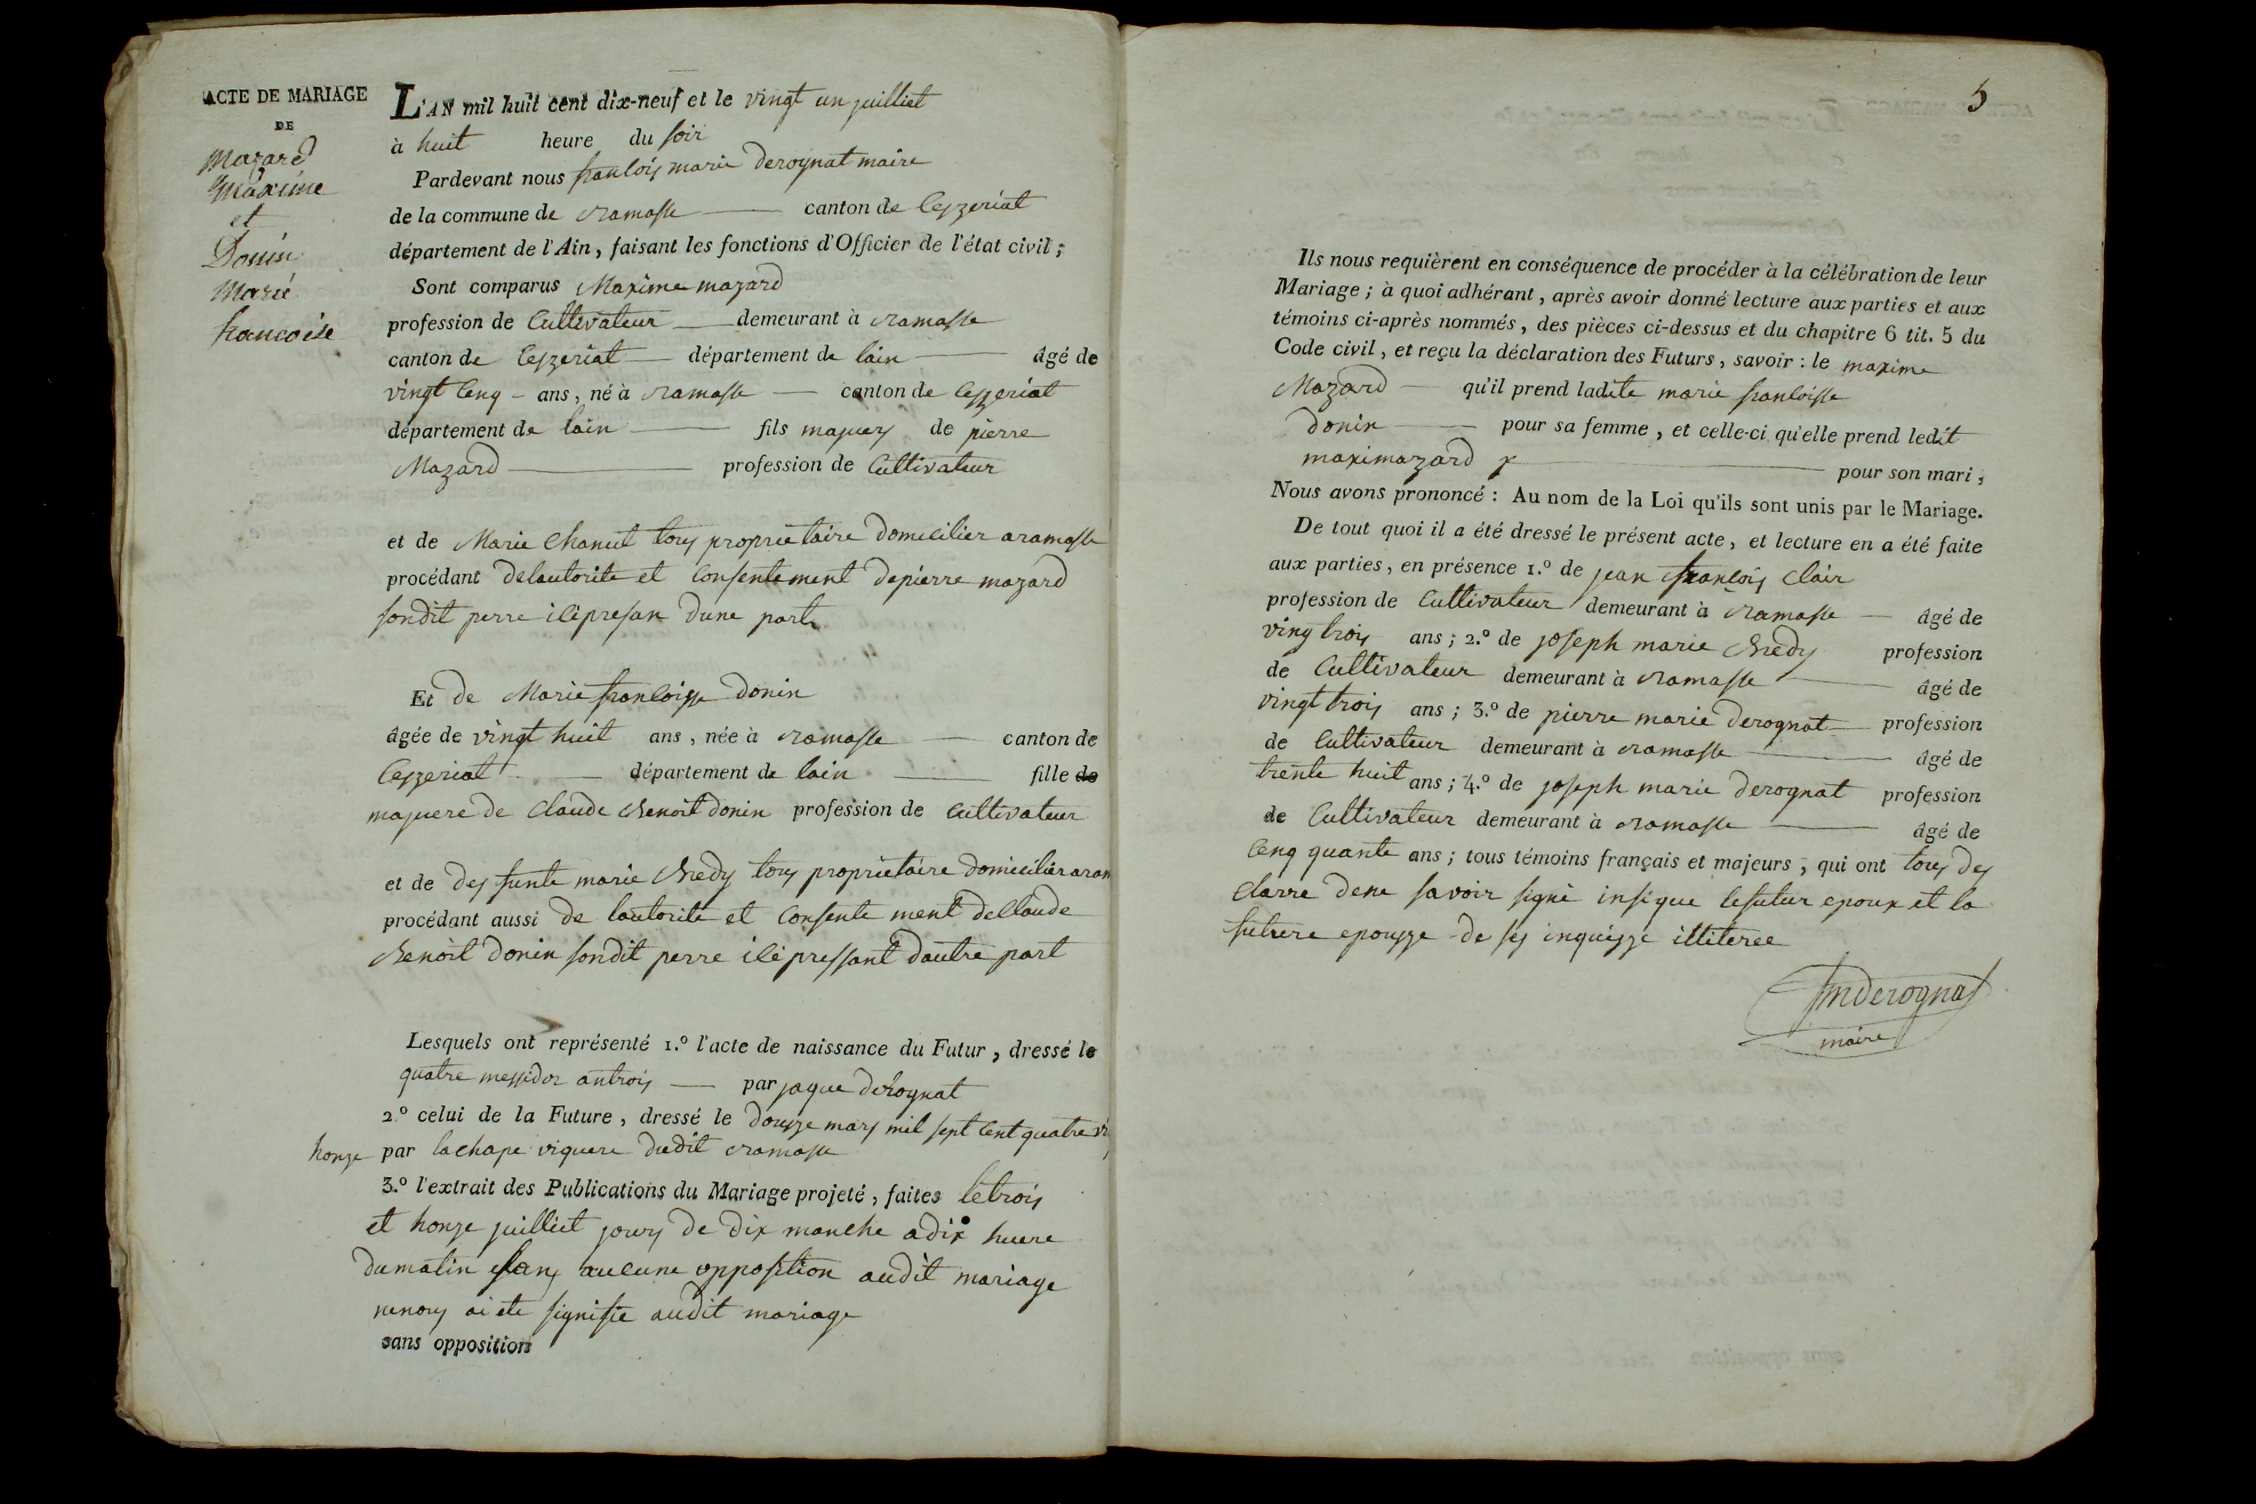 ACTE DE MARIAGE
DE
Mazard
Maxime
et
Donin
Marie
francoise
L'AN mil huit cent dix-neuf et le vingt un juilliet
à huit heure du soir
Pardevant nous francois marie derognat maire
de la commune de ramasse canton de Ceyzeriat
département de l'Ain, faisant les fonctions d'Officier de l'état civil;
Sont comparus Maxime mazard
profession de Cultivateur demeurant à ramasse
canton de Ceyzeriat département de lain âgé de
vingt cenq ans, né à ramasse canton de Ceyzeriat
département de lain fils majuers de pierre
Mazard profession de Cultivateur
et de Marie Chanut tous proprietaire domicilier aramasse
procédant delautorite et consentement depierre mazard
sondit perre icipresan dune part
Et de Marie francoisse donin
âgée de vingt huit ans, née à ramasse canton de
Ceyzeriat département de lain fille de
majuere de Claude Benoit donin profession de Cultivateur
et de desfunte marie Bredy tous proprietaire domicilier aram
procédant aussi de lautorite et consente ment declaude
Benoit donin sondit perre ici pressant dautre part
Lesquels ont représenté 1.º l'acte de naissance du Futur, dressé le
quatre messidor antrois par jaque derognat
2.º celui de la Future, dressé le douzze mars mil sept cent quatre vi
honze par lachape viquere dudit ramasse
3.º l'extrait des Publications du Mariage projeté, faites letrois
et honze juilliet jours de dix manche adix huere
dumatin sans aucune opposition audit mariage
nenous ai ete signifie audit mariage
sans opposition
5
Ils nous requièrent en conséquence de procéder à la célébration de leur
Mariage; à quoi adhérant, après avoir donné lecture aux parties et aux
témoins ci-après nommés, des pièces ci-dessus et du chapitre 6 tit. 5 du
Code civil, et reçu la déclaration des Futurs, savoir: le maxime
Mazard qu'il prend ladite marie francoisse
donin pour sa femme, et celle-ci qu'elle prend ledit
maximazard x pour son mari,
Nous avons prononcé: Au nom de la Loi qu'ils sont unis par le Mariage.
De tout quoi il a été dressé le présent acte, et lecture en a été faite
aux parties, en présence 1.º de jean francois Clair
profession de Cultivateur demeurant à ramasse âgé de
ving trois ans; 2.º de joseph marie Bredy profession
de Cultivateur demeurant à ramasse âgé de
vingt trois ans; 3.º de pierre marie derognat profession
de Cultivateur demeurant à ramasse âgé de
trente huit ans; 4.º de joseph marie derognat profession
de Cultivateur demeurant à ramasse âgé de
cenq quante ans; tous témoins français et majeurs, qui ont tous des
clarre dene savoir signé insi que lefutur epoux et la
futuere epouzze de ses inquizze illiteree
fmderognat
maire